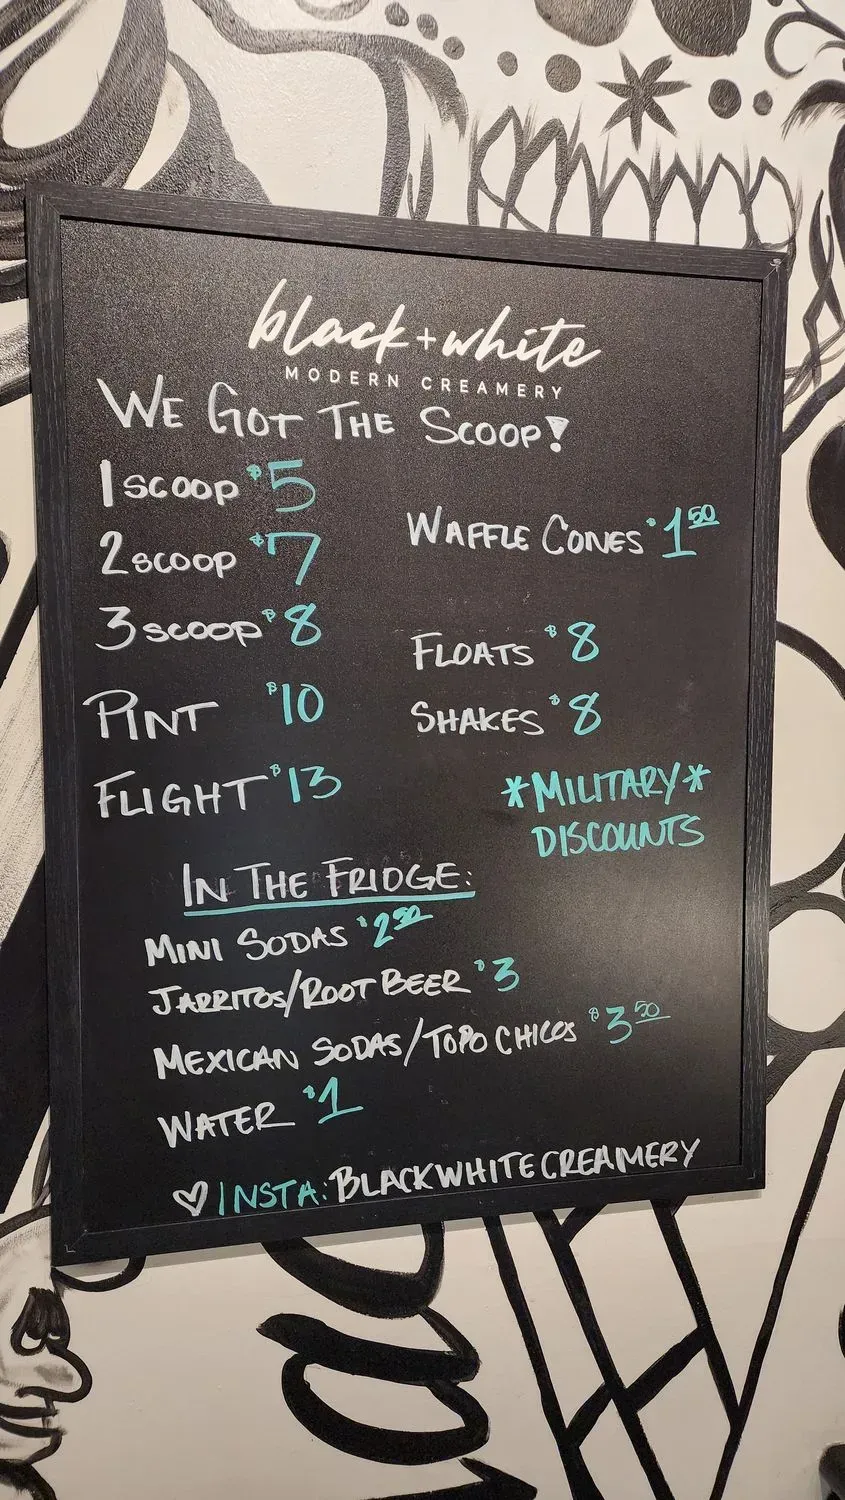 black+white
MODERN CREAMERY
WE GOT THE SCOOP!
1 SCOOP $5
2 SCOOP $7
3 SCOOP $8
PINT $10
FLIGHT $13
WAFFLE CONES $1 50
FLOATS $8
SHAKES $8
*MILITARY*
DISCOUNTS
IN THE FRIDGE:
MINI SODAS $2 50
JARRITOS/ROOT BEER $3
MEXICAN SODAS/TOPO CHICOS $3 50
WATER $1
♡ INSTA: BLACKWHITECREAMERY